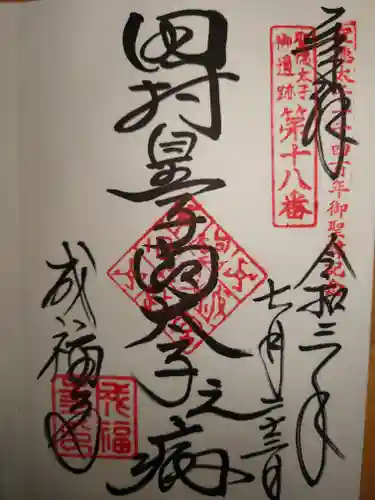 奉拝
聖徳太子千四百年御聖忌記念
聖徳太子
御遺跡 第十八番
令和三年
七月二十三日
田村皇子問太子之病
成福寺